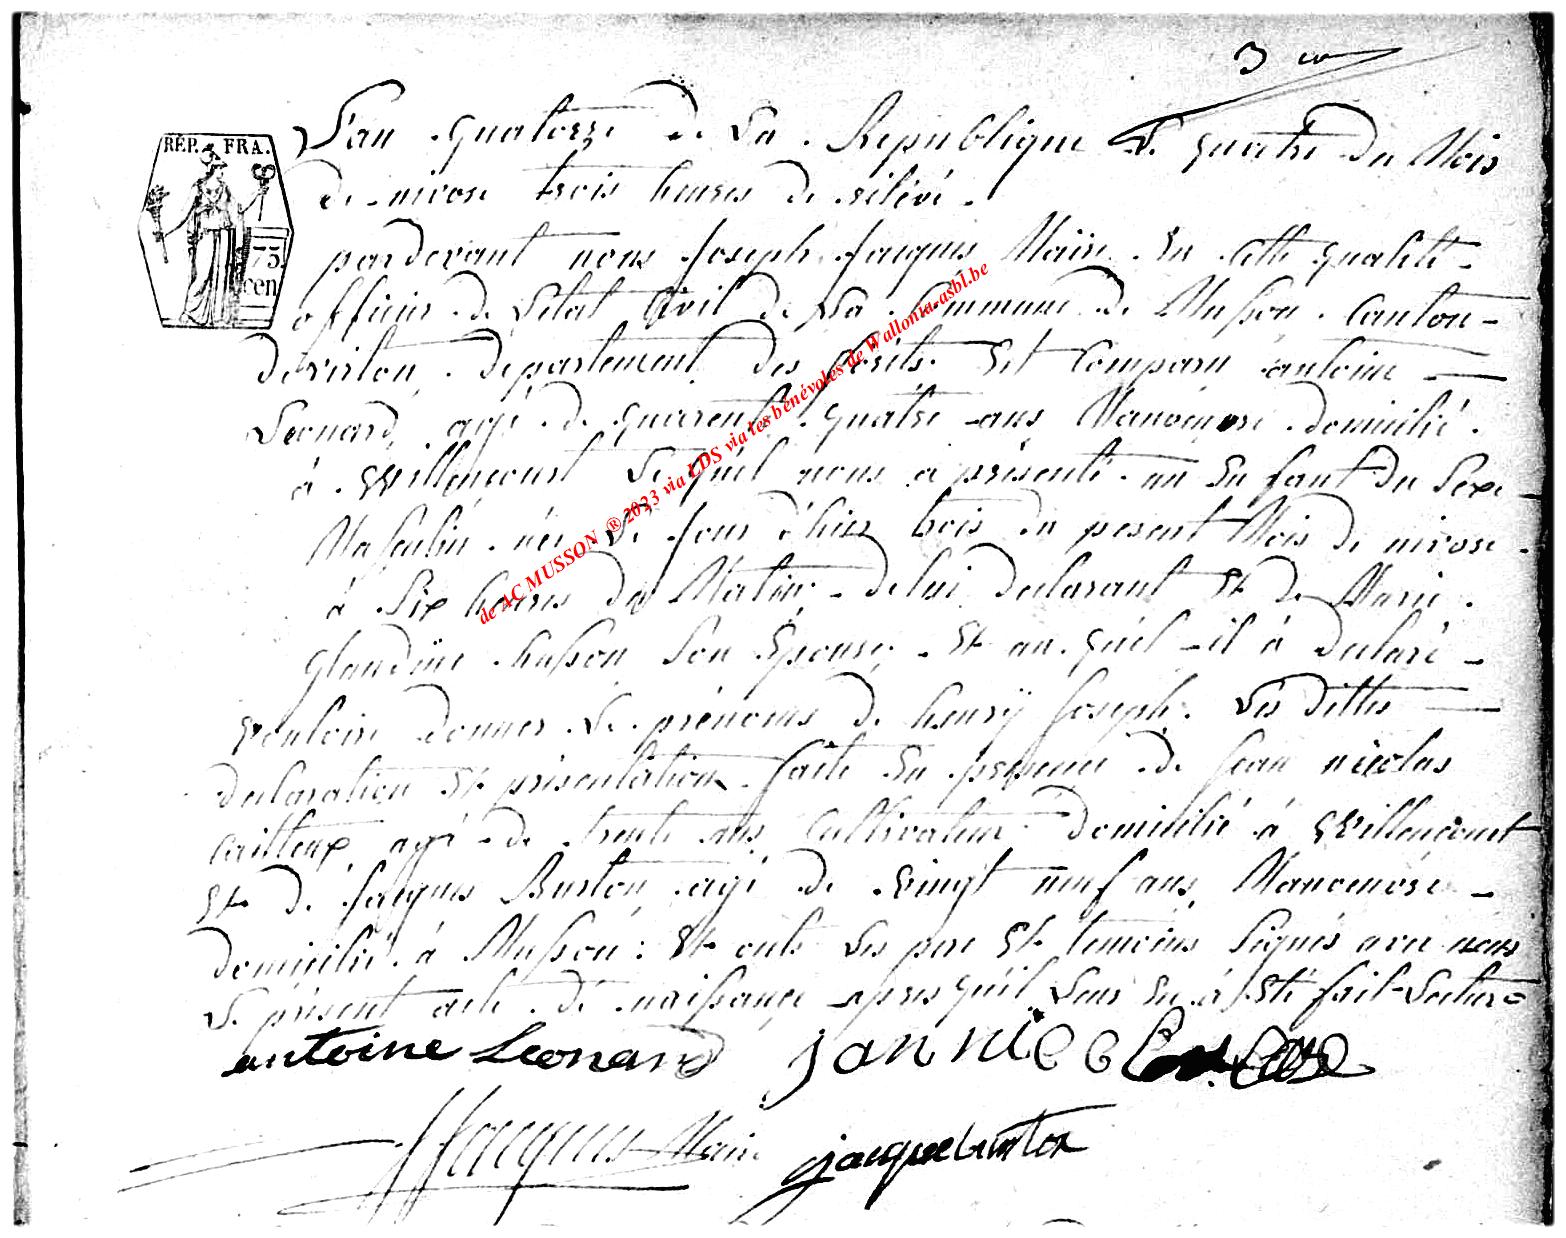 3 eme
RÉP. FRA.
75
cen
L'an quatorze de La Republique Le quatre du Mois
de nivose trois heures de rélévé.
pardevant nous Joseph Jacques Maire En Cette qualité
officier de Létat Civil de La Commune de Musson Canton
de virton, département des forêts Est Comparu antoine
Leonard, agé de quarente quatre ans Manoeuvre domicilié
à Willencourt Lequel nous a présenté un Enfant du Sexe
Masculin née Le Jour d'hier trois du pesent Mois de nivose
à Six heures du Matin, de lui declarant Et de Marie
Glaudine husson Son Epouse, Et au quel il à declaré
vouloir donner Le prénoms de henrÿ Joseph. Les dittes
declaration Et présentation faite En presence de Jean nicolas
Cailteux agé de trente ans Cultivateur domicilié à Willencourt
Et de Jacques Burton, agé de vingt neuf ans, Manoeuvre
domicilié à Musson: Et onts Les pere Et temoins Signés avec nous
Le présent acte de naissance apres qu'il Leur En à Eté fait Lecture
antoine Leonard Jan nicola
JJacques Maire jacque burton
de AC MUSSON ® 2023 via LDS via les bénévoles de Wallonia-asbl.be